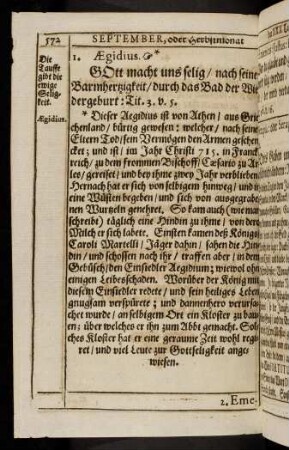 572
SEPTEMBER, oder Herbstmonat
Die
Tauffe
gibt die
ewige
Selig-
keit.
Ægidius.
1. Ægidius. *
GOtt macht uns selig / nach seiner
Barmhertzigkeit / durch das Bad der Wie
dergeburt: Tit. 3. v. 5.
* Dieser Aegidius ist von Athen / aus Grie
chenland / bürtig gewesen: welcher / nach seiner
Eltern Tod / sein Vermögen den Armen geschen
cket; und ist / im Jahr Christi 715. in Franck
reich / zu dem frommen Bischoff / Cæsario zu Ar
les / gereiset / und bey ihme zwey Jahr verblieben
Hernach hat er sich von selbigem hinweg / und in
eine Wüsten begeben / und sich von ausgegrabe
nen Wurtzeln genehret. So kam auch (wie man
schreibt) täglich eine Hindin zu ihme / von deren
Milch er sich labete. Einsten kamen deß Königs
Caroli Martelli / Jäger dahin / sahen die Hin
din / und schossen nach ihr / traffen aber / in dem
Gebüsch / den Einsiedler Aegidium; wiewol ohn
einigen Leibesschaden. Worüber der König mit
diesem Einsiedler redete / und sein heiliges Leben
gnugsam verspürete; und dannenhero verursa
chet wurde / an selbigem Ort ein Kloster zu bau
en; über welches er ihn zum Abbt gemacht. Sol
ches Kloster hat er eine geraume Zeit wohl regi
ret / und viel Leute zur Gottseligkeit ange
wiesen.
2. Eme-